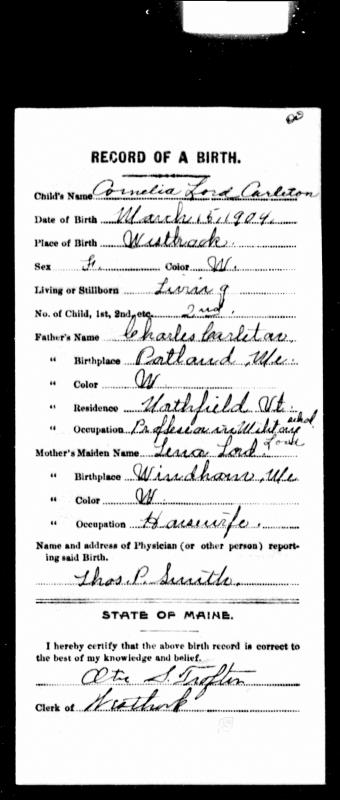 RECORD OF A BIRTH.
Child's Name Cornelia Lord Carleton
Date of Birth March 15, 1909.
Place of Birth Westbrook.
Sex F. Color W.
Living or Stillborn Living
No. of Child, 1st, 2nd, etc. 2nd.
Father's Name Charles Carleton
" Birthplace Portland, Me.
" Color W
" Residence Northfield Vt.
" Occupation Professor in Military school
Mother's Maiden Name Lena Lord.
" Birthplace Windham, Me
" Color W
" Occupation Housewife.
Name and address of Physician (or other person) report-
ing said Birth.
Thos. P. Smith.
STATE OF MAINE.
I hereby certify that the above birth record is correct to
the best of my knowledge and belief.
S. Trafton
Clerk of Westbrook